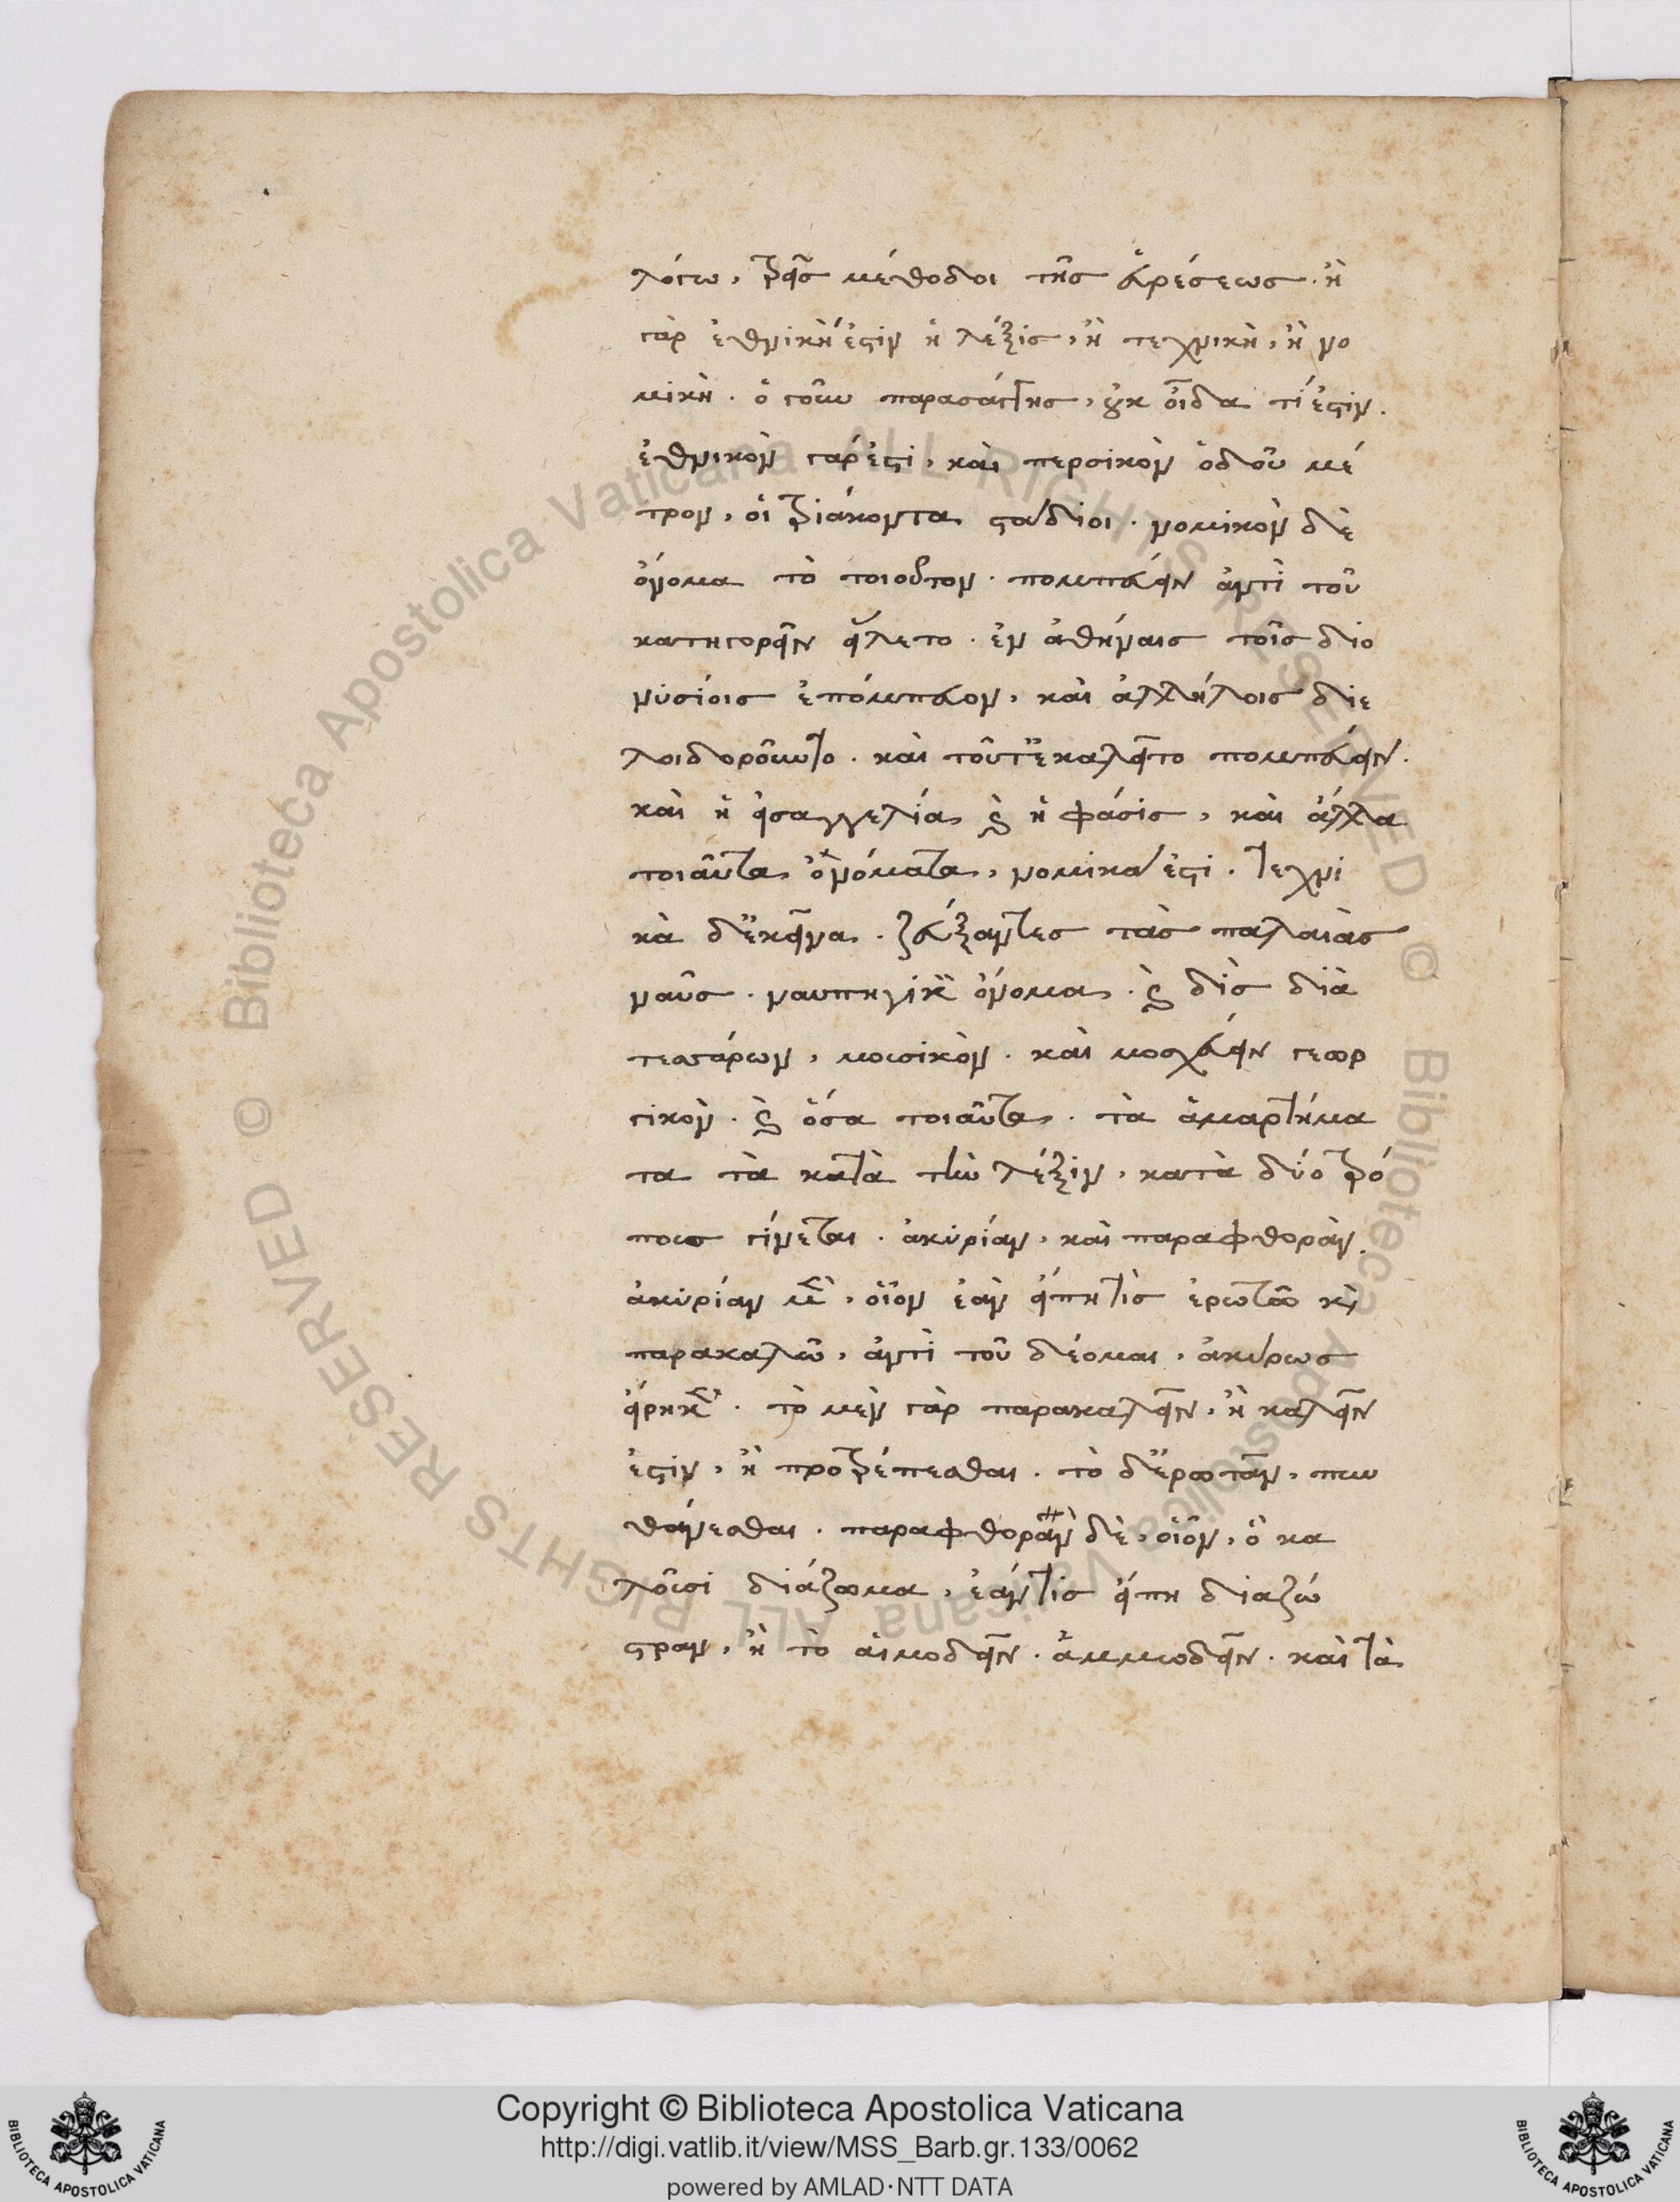 λόγω, τρεῖς μέθοδοι τῆς εὑρέσεως. ἢ
γὰρ ἐθνικὴ ἐστὶν ἡ λέξις, ἢ τεχνικὴ, ἢ νο
μικὴ. ὁ γοῦν παρασάγγης, οὐκ οἶδα τί ἐστὶν.
ἐθνικὸν γάρ ἐστι, καὶ περσικὸν ὁδοῦ μέ
τρον, οἱ τριάκοντα στάδιοι. νομικὸν δὲ
ὄνομα τὸ τοιοῦτον. πομπεύειν ἀντὶ τοῦ
κατηγορεῖν εἵλετο. ἐν ἀθήναις τοῖς διο
νυσίοις ἐπόμπευον, καὶ ἀλλήλοις διε
λοιδοροῦντο. καὶ τοῦτ' ἐκαλεῖτο πομπεύειν.
καὶ ἡ εἰσαγγελία καὶ ἡ φάσις, καὶ ἄλλα
τοιαῦτα ὀνόματα, νομικά ἐστι. τεχνι
κὰ δ' ἐκεῖνα. ζεύξαντες τὰς παλαιὰς
ναῦς. ναυπηγικὸν ὄνομα. καὶ δὶς διὰ
τεσσάρων, μουσικὸν. καὶ μοσχεύειν γεωρ
γικὸν. καὶ ὅσα τοιαῦτα. τὰ ἁμαρτήμα
τα τὰ κατὰ τὴν λέξιν, κατὰ δύο τρό
πους γίνεται. ἀκυρίαν, καὶ παραφθορὰν.
ἀκυρίαν μὲν, οἷον ἐὰν εἴπη τὶς ἐρωτῶ καὶ
παρακαλῶ, ἀντὶ τοῦ δέομαι, ἀκύρως
εἴρηκεν. τὸ μὲν γὰρ παρακαλεῖν, ἢ καλεῖν
ἐστὶν, ἢ προτρέπεσθαι. τὸ δ' ἐρωτᾶν, πυν
θάνεσθαι. παραφθορὰν δὲ, οἷον, ὃ κα
λοῦσι διάζωμα, ἐάν τις εἴπη διαζώ
στραν, ἢ τὸ αἱμοδεῖν. ἀμμωδεῖν. καὶ τὰ
Copyright © Biblioteca Apostolica Vaticana
http://digi.vatlib.it/view/MSS_Barb.gr.133/0062
powered by AMLAD·NTT DATA